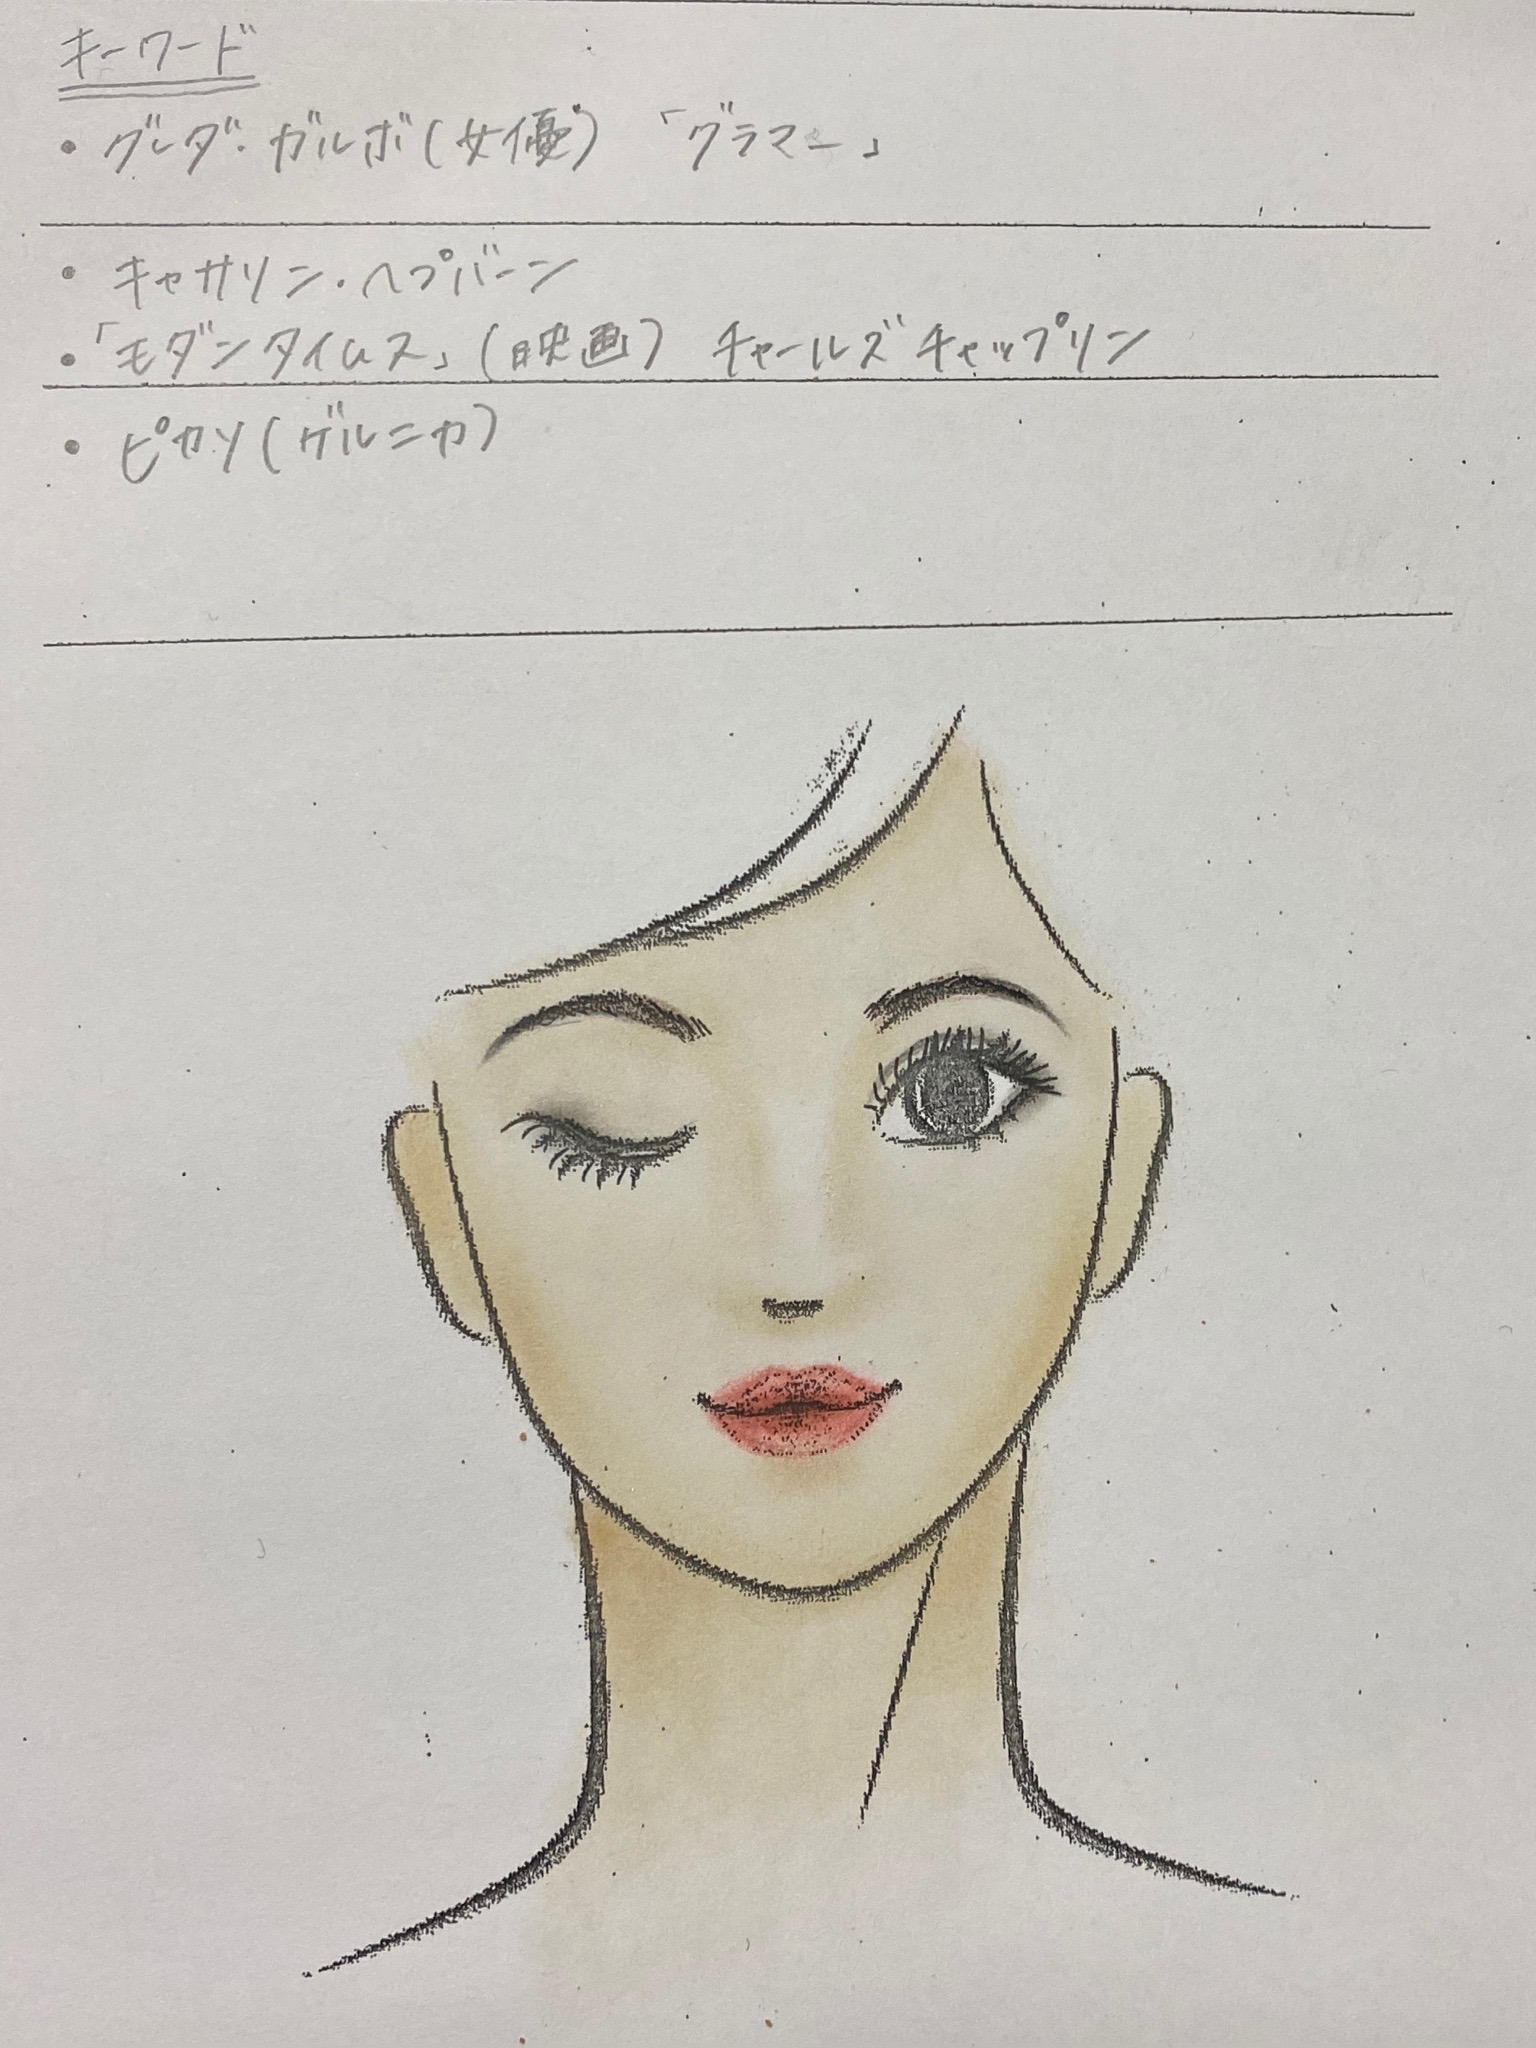 キーワード
・グレダ・ガルボ(女優) 「グラマー」
・キャサリン・ヘプバーン
・「モダンタイムス」(映画) チャールズチャップリン
・ピカソ(ゲルニカ)